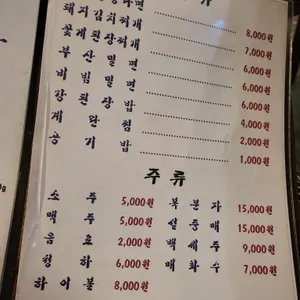 돼지김치찌개 8,000원
꽃게된장찌개 7,000원
부산밀면 6,000원
비빔밀면 6,000원
강된장밥 6,000원
계란찜 4,000원
2,000원
공기밥 1,000원
주류
소주 5,000원 복분자 15,000원
맥주 5,000원 설중매 15,000원
음료 2,000원 백세주 9,000원
청하 6,000원 매화수 7,000원
하이볼 8,000원